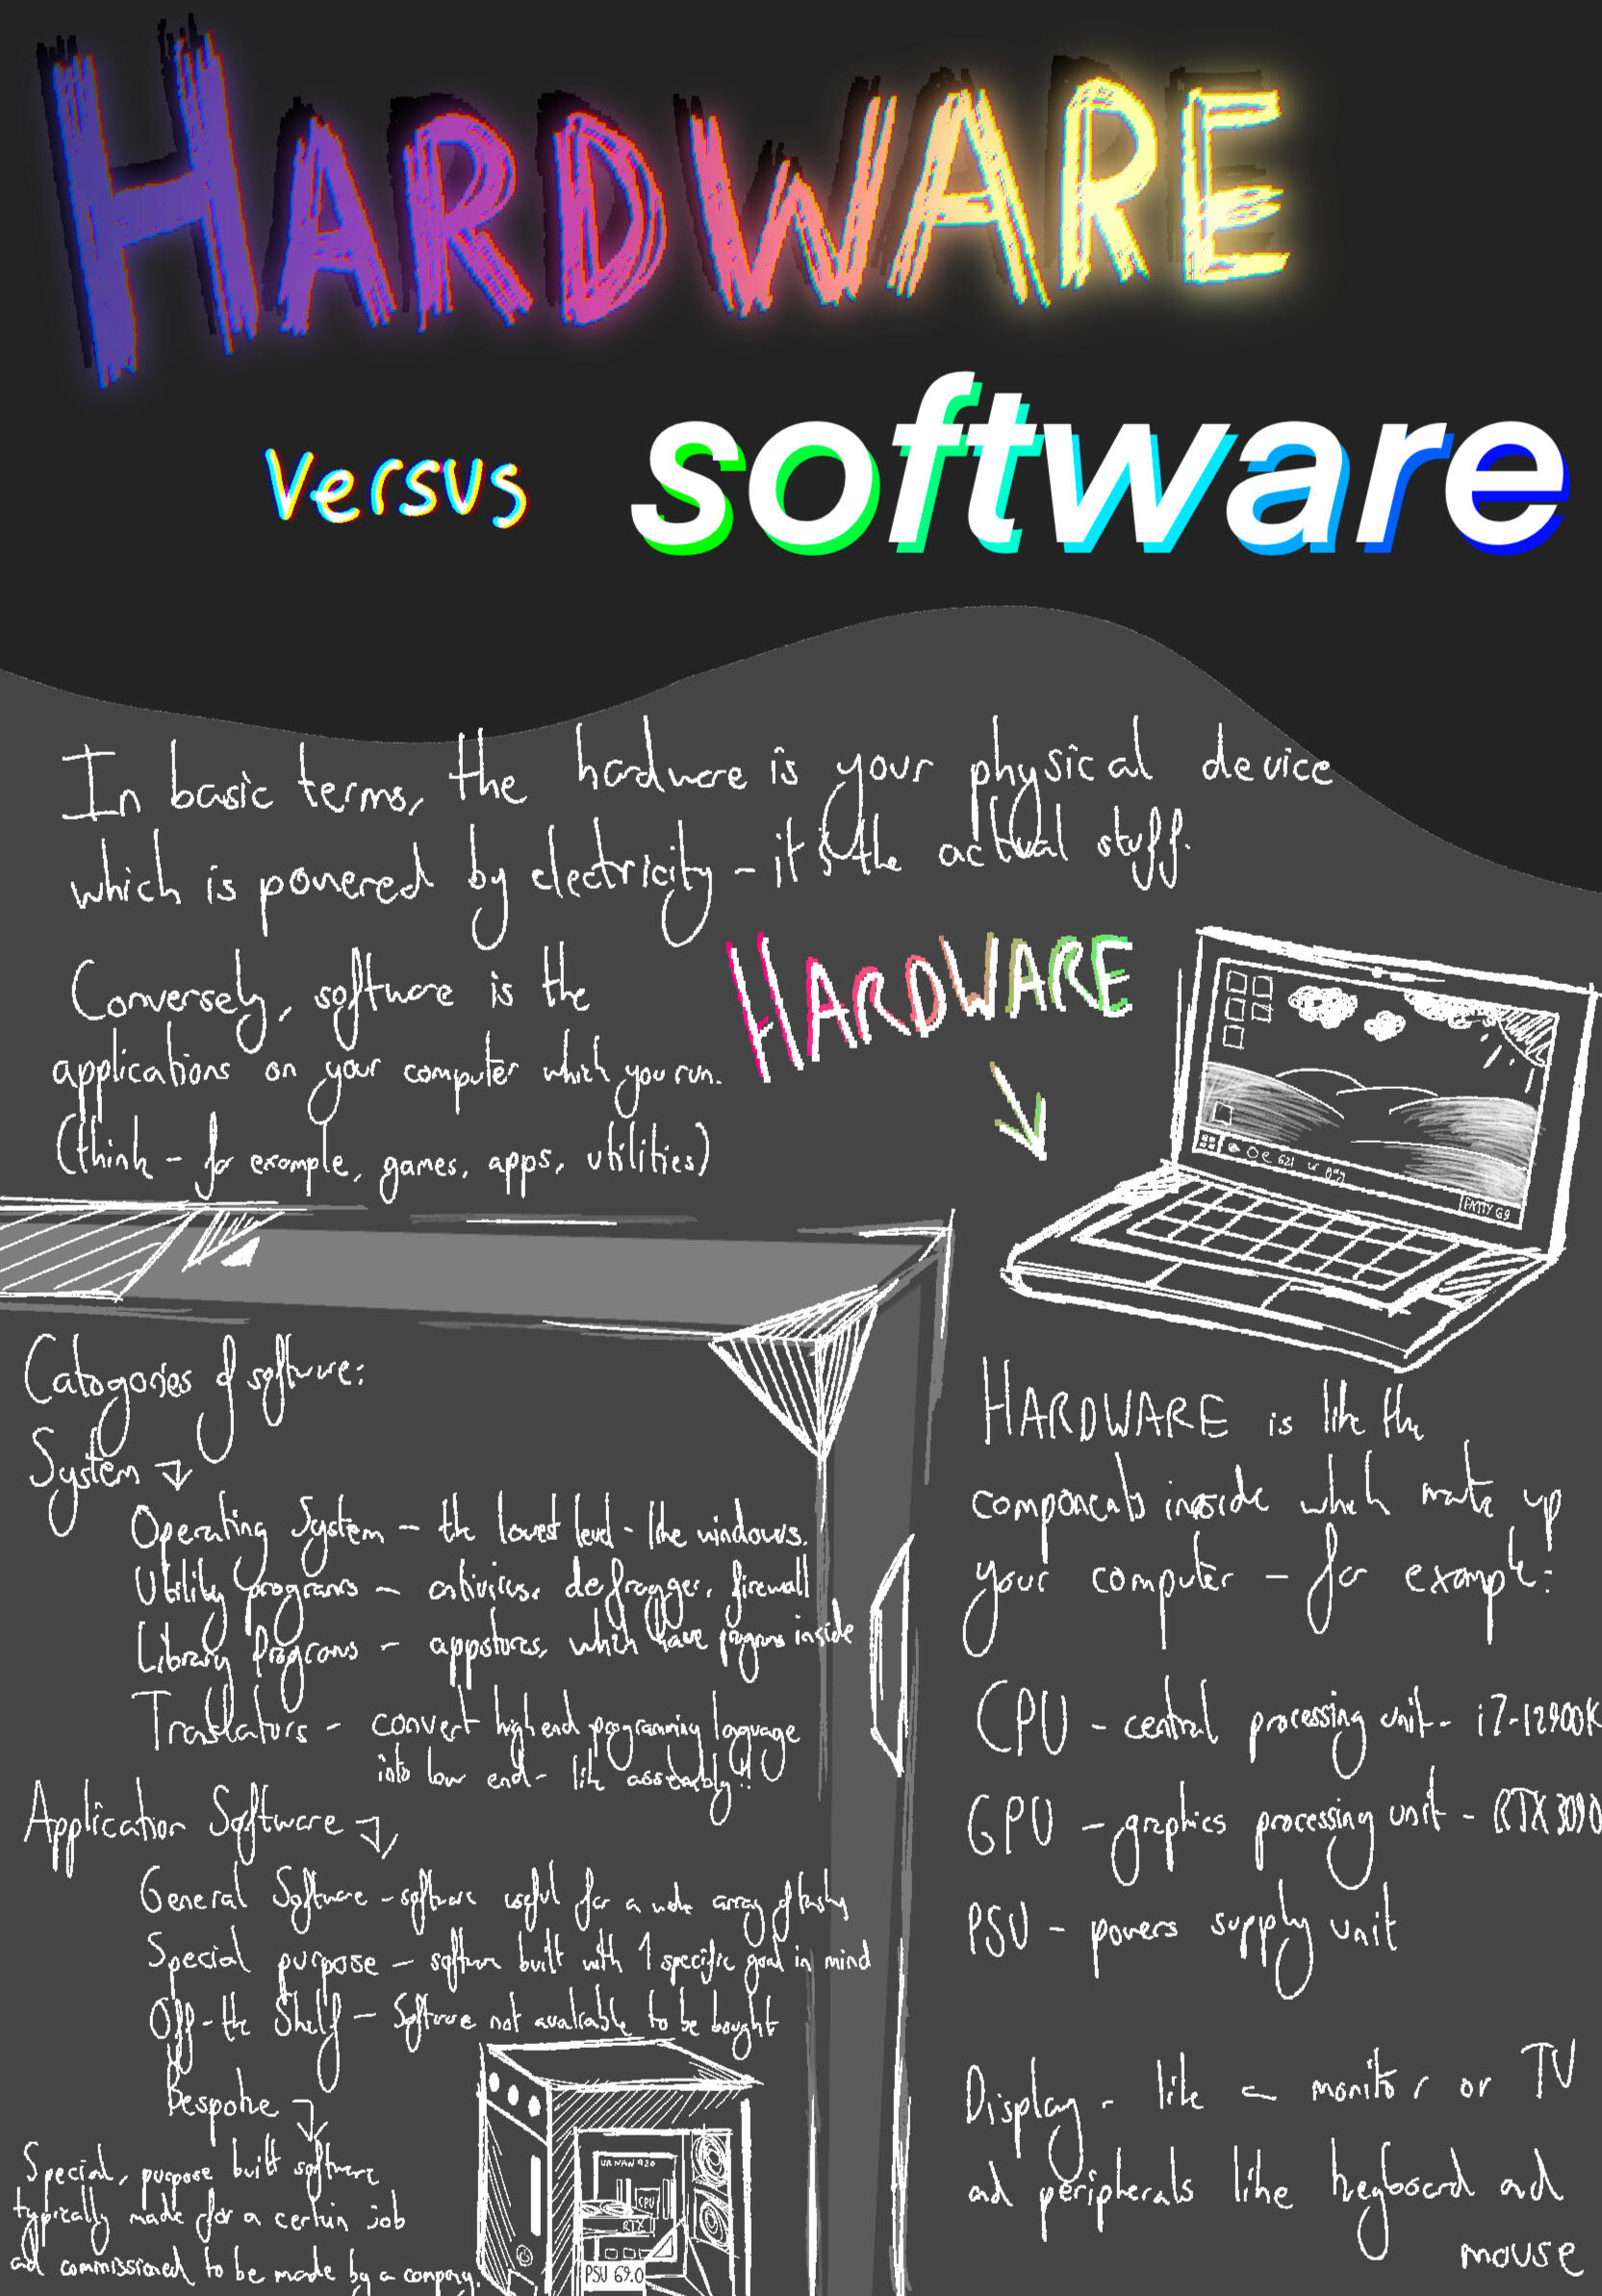 HARDWARE
versus
software
In basic terms, the hardware is your physical device
which is powered by electricity - it's the actual stuff.
Conversely, software is the
applications on your computer which you run.
(think - for example, games, apps, utilities)
HARDWARE
PATTY 69
Catogories of software:
System
Operating System - the lowest level - like windows.
Utility programs - antivirus, defragger, firewall
Library Programs - appstores, which have programs inside
Translators - convert high end programming language
into low end - like assembly!!
Application Software
General Software - software useful for a wide array of tasks
Special purpose - software built with 1 specific goal in mind
Off-the Shelf - Software not available to be bought
Bespoke
Special, purpose built software
typically made for a certain job
and commissioned to be made by a company.
UR NAN 920
CPU
RTX
PSU 69.0
HARDWARE is like the
components inside which make up
your computer - for example:
CPU - central processing unit - i7-12900K
GPU - graphics processing unit - RTX 3090
PSU - powers supply unit
Display - like a monitor or TV
and peripherals like keyboard and
mouse